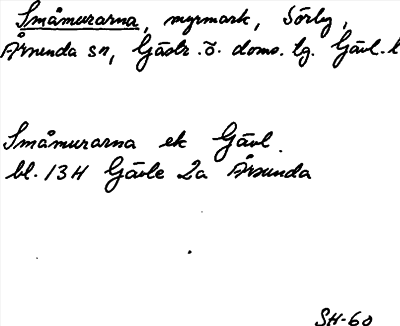 Småmurarna, myrmark, Sörby,
Årsunda sn, Gästr. ö. doms. tg. Gävl. l
Småmurarna ek Gävl.
bl. 13H Gävle 2a Årsunda
SH-60